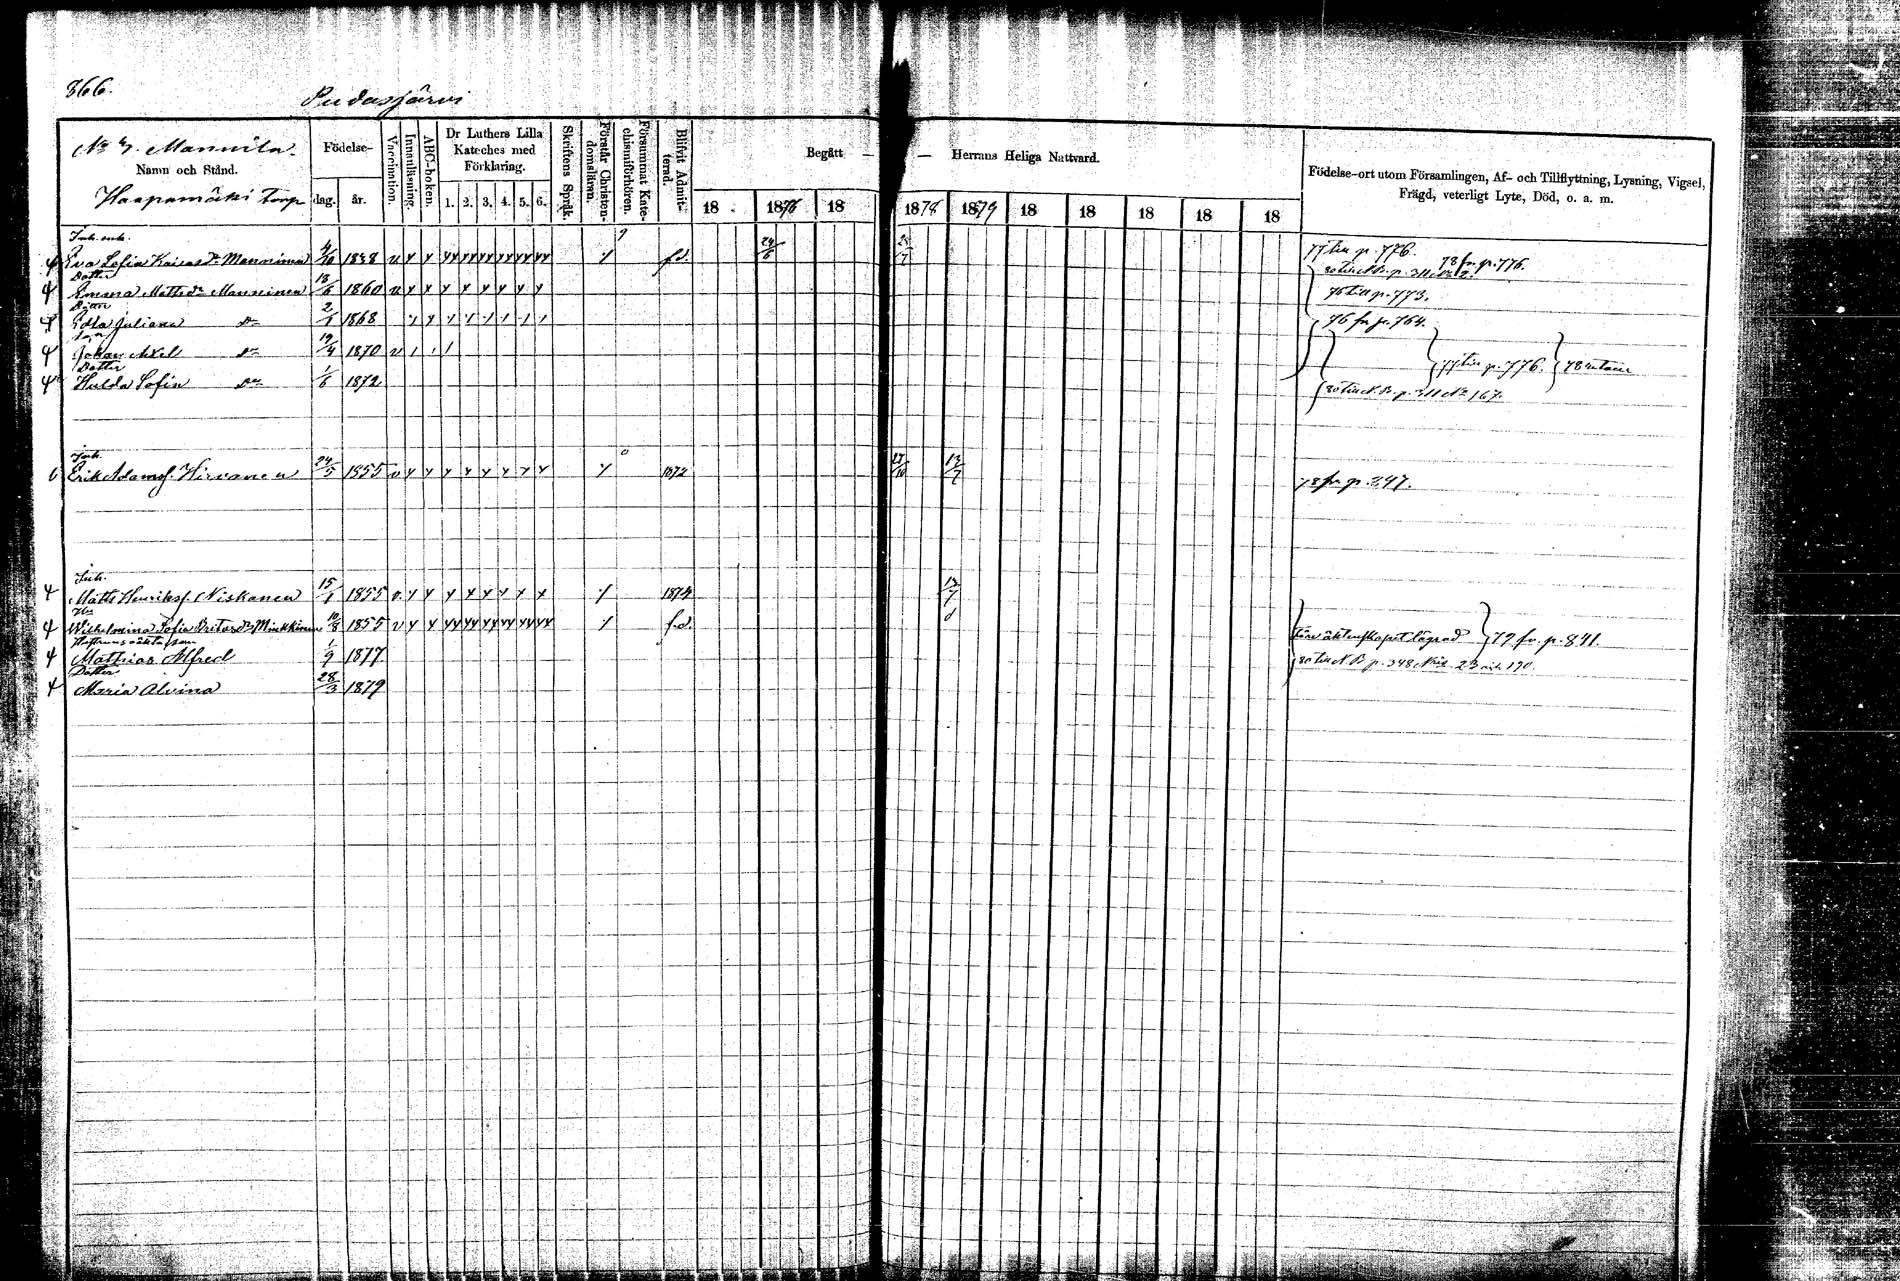 866.
Pudasjärvi
No 7. Mannila.
Namn och Stånd.
Haapamäki torp
Födelse-
dag. år.
Vaccination.
Innanläsning.
ABC-boken.
Dr Luthers Lilla Kateches med Förklaring.
1. 2. 3. 4. 5. 6.
Skriftens Språk.
Förstår Christendomsläran.
Försummat Katechismiförhören.
Blifvit Admitterad.
Begått — — Herrans Heliga Nattvard.
18 1876 18 1878 1879 18 18 18 18 18
Födelse-ort utom Församlingen, Af- och Tillflyttning, Lysning, Vigsel, Frägd, veterligt Lyte, Död, o. a. m.
Inh. enk.
Eva Sofia Kaisasdr Manninen 4/10 1838 v f.d. 24/6 77 till p. 776. 78 fr. p. 776.
Dotter
Emma Mattsdr Manninen 13/6 1860 v 76 till p. 773.
Dotter
Edla Juliana Dr 2/1 1868 76 fr p. 764.
Son
Johan Axel Dr 19/4 1870 v
Dotter
Hulda Sofia Dr 1/6 1872 77 till p. 776. 78 retour
Inh.
Erik Adamsf. Hirvonen 24/5 1855 v 1872 27/10 13/7 78 fr p. 247.
Inh.
Matts Henriksf. Niskanen 15/1 1855 v 1874 13/7
Hu
Wilhelmina Sofia Britasdr Minkkinen 10/8 1855 v f.d. före äktenskapet lägrad 79 fr. p. 841.
Mathias Alfred 1/9 1877
Dotter
Maria Alvina 28/3 1879